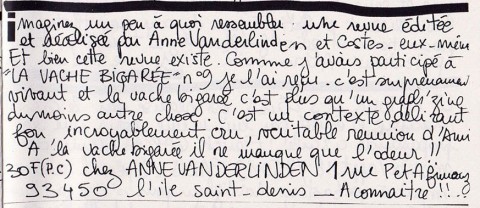 imaginez un peu à quoi ressembler une revue éditée
et réalisée par Anne Vanderlinden et Costes_eux_mêm
Et bien cette revue existe. Comme j'avais participé à
"LA VACHE BIGARÉE" n°9 je l'ai reçu. c'est surprenamment
vivant et la vache bigarée c'est plus qu'un graphzine
du moins autre chose. C'est un contexte délirant
fou incroyablement cru, véritable reunion d'Ami
A la vache bigarée il ne manque que l'odeur !!
30F(P.C) chez ANNE VANDERLINDEN 1 rue Pet
93450 l'ile saint-denis _ A connaitre !!.